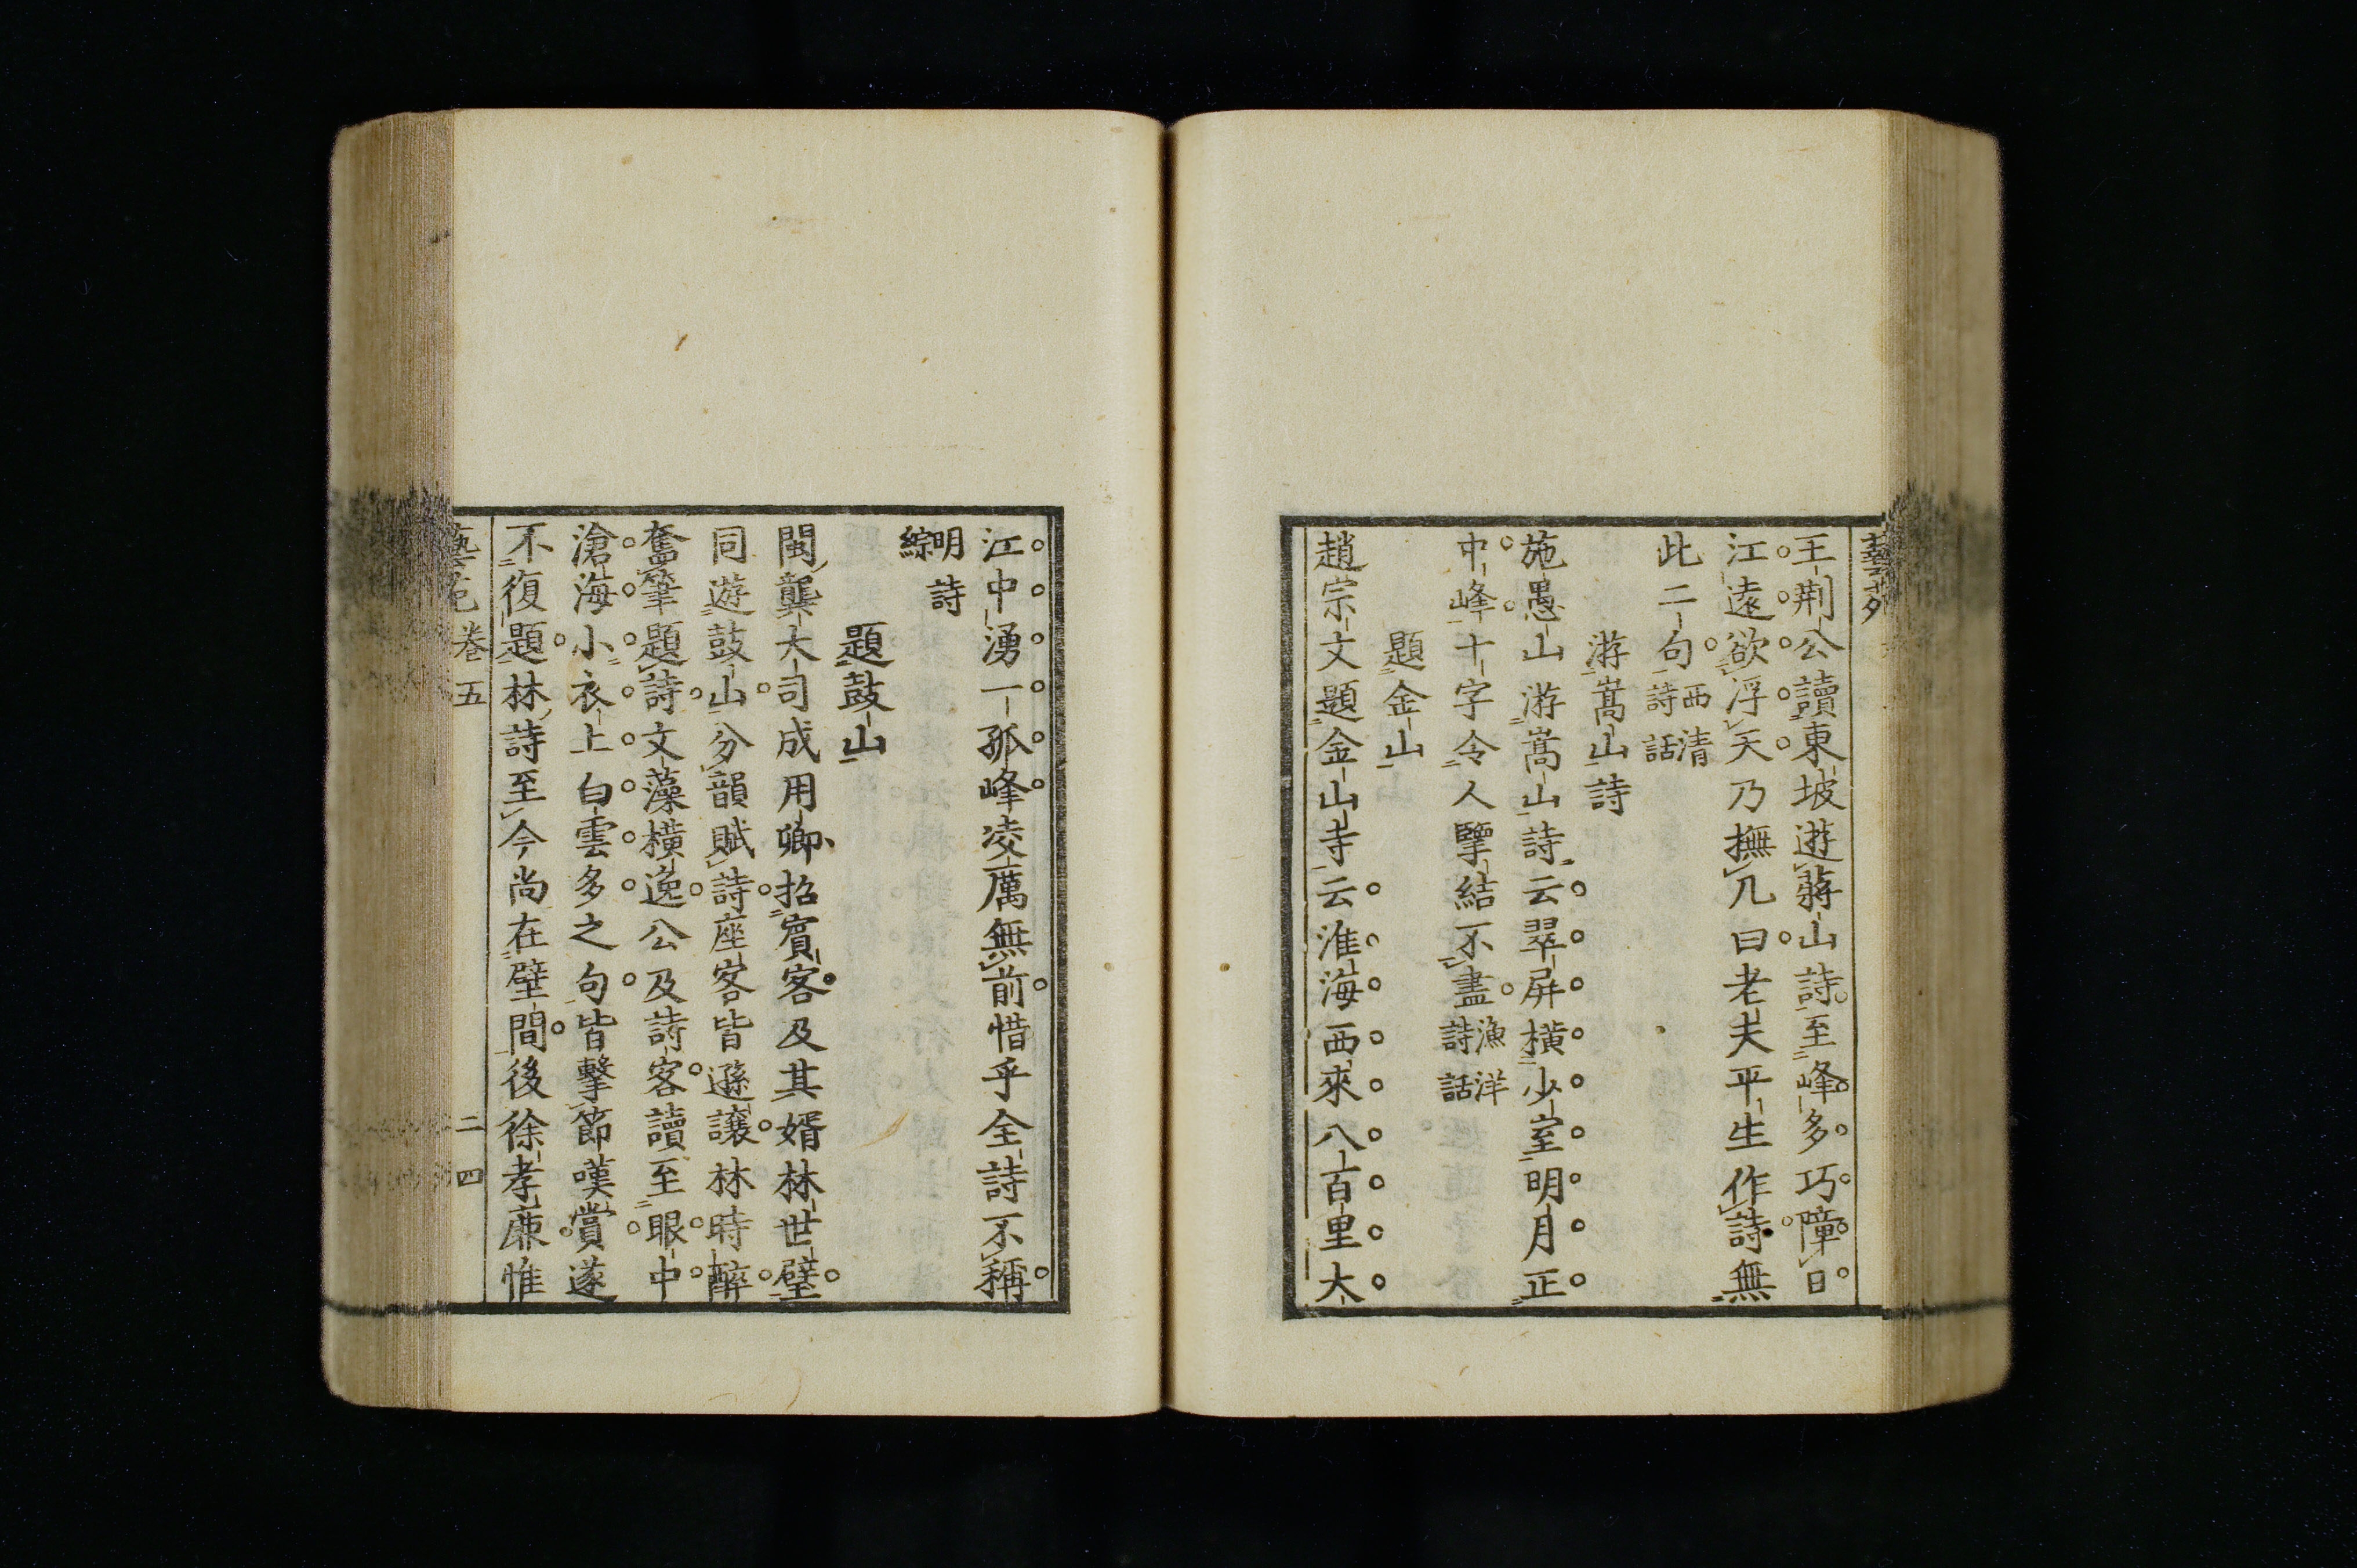 藝苑
王荆公讀東坡遊蔣山詩至峰多巧障日
江遠欲浮天乃撫几曰老夫平生作詩無
此二句西清詩話
游嵩山詩
施愚山游嵩山詩云翠屏橫少室明月正
中峰十字令人擥結不盡漁洋詩話
題金山
趙宗文題金山寺云淮海西來八百里大
江中湧一孤峰凌厲無前惜乎全詩不稱
明詩綜
題鼓山
閩龔大司成用卿招賓客及其婿林世璧
同遊鼓山分韻賦詩座客皆遜讓林時醉
奮筆題詩文藻橫逸公及詩客讀至眼中
滄海小衣上白雲多之句皆擊節嘆賞遂
不復題林詩至今尚在壁間後徐孝廉惟
藝苑 卷五 二四